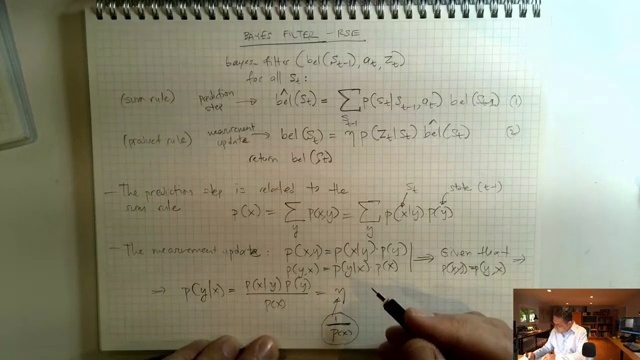 BAYES FILTER - RSE
bayes-filter (bel(S_{t-1}), a_t, Z_t)
for all S_t:
(sum rule) prediction step → b̂el(S_t) = Σ_{S_{t-1}} P(S_t|S_{t-1}, a_t) bel(S_{t-1}) (1)
(product rule) measurement update → bel(S_t) = η P(Z_t|S_t) b̂el(S_t) (2)
return bel(S_t)
- The prediction step is related to the
sum rule
S_t state (t-1)
P(x) = Σ_y P(x,y) = Σ_y P(x|y) P(y)
- The measurement update: P(x,y) = P(x|y) · P(y)
P(y,x) = P(y|x) P(x) ⟹ Given that ⟹
P(x,y) = P(y,x)
⟹ P(y|x) = P(x|y) P(y) / P(x) = η
1 / P(x)